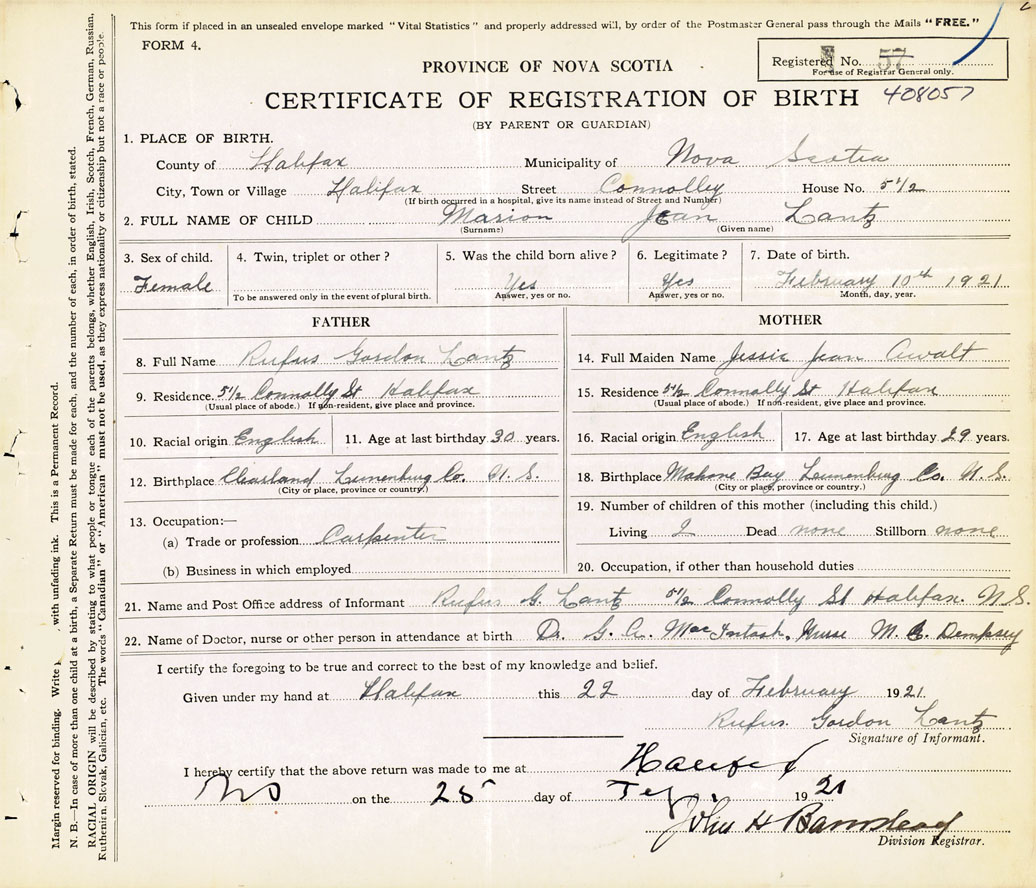 This form if placed in an unsealed envelope marked "Vital Statistics" and properly addressed will, by order of the Postmaster General pass through the Mails "FREE."
FORM 4.
Registered No. 57
For use of Registrar General only.
PROVINCE OF NOVA SCOTIA
CERTIFICATE OF REGISTRATION OF BIRTH 408057
(BY PARENT OR GUARDIAN)
1. PLACE OF BIRTH.
County of Halifax Municipality of Nova Scotia
City, Town or Village Halifax Street Connolley House No. 5 1/2
(If birth occurred in a hospital, give its name instead of Street and Number)
2. FULL NAME OF CHILD Marion Jean Lantz
(Surname) (Given name)
3. Sex of child. 4. Twin, triplet or other? 5. Was the child born alive? 6. Legitimate? 7. Date of birth.
Female Yes Yes February 10th 1921
To be answered only in the event of plural birth. Answer, yes or no. Answer, yes or no. Month, day, year.
FATHER
8. Full Name Rufus Gordon Lantz
9. Residence. 5 1/2 Connolly St Halifax
(Usual place of abode.) If non-resident, give place and province.
10. Racial origin English 11. Age at last birthday 30 years.
12. Birthplace Clearland Lunenburg Co. N. S.
(City or place, province or country.)
13. Occupation:—
(a) Trade or profession Carpenter
(b) Business in which employed
MOTHER
14. Full Maiden Name Jessie Jean Awalt
15. Residence 5 1/2 Connolly St Halifax
(Usual place of abode.) If non-resident, give place and province.
16. Racial origin English 17. Age at last birthday 29 years.
18. Birthplace Mahone Bay Lunenburg Co. N. S.
(City or place, province or country.)
19. Number of children of this mother (including this child.)
Living 2 Dead none Stillborn none
20. Occupation, if other than household duties
21. Name and Post Office address of Informant Rufus G. Lantz 5 1/2 Connolly St Halifax. N. S.
22. Name of Doctor, nurse or other person in attendance at birth Dr. G. A. MacIntosh, Nurse M. C. Dempsey
I certify the foregoing to be true and correct to the best of my knowledge and belief.
Given under my hand at Halifax this 22 day of February 1921.
Rufus. Gordon Lantz
Signature of Informant.
I hereby certify that the above return was made to me at Halifax
NS on the 25 day of 1921
John H Barnstead
Division Registrar.
Margin reserved for binding. Write with unfading ink. This is a Permanent Record.
N. B.—In case of more than one child at a birth, a Separate Return must be made for each, and the number of each, in order of birth, stated.
RACIAL ORIGIN will be described by stating to what people or tongue each of the parents belongs, whether English, Irish, Scotch, French, German, Russian,
Ruthenian, Slovak, Galician, etc. The words "Canadian" or "American" must not be used, as they express nationality or citizenship but not a race or people.